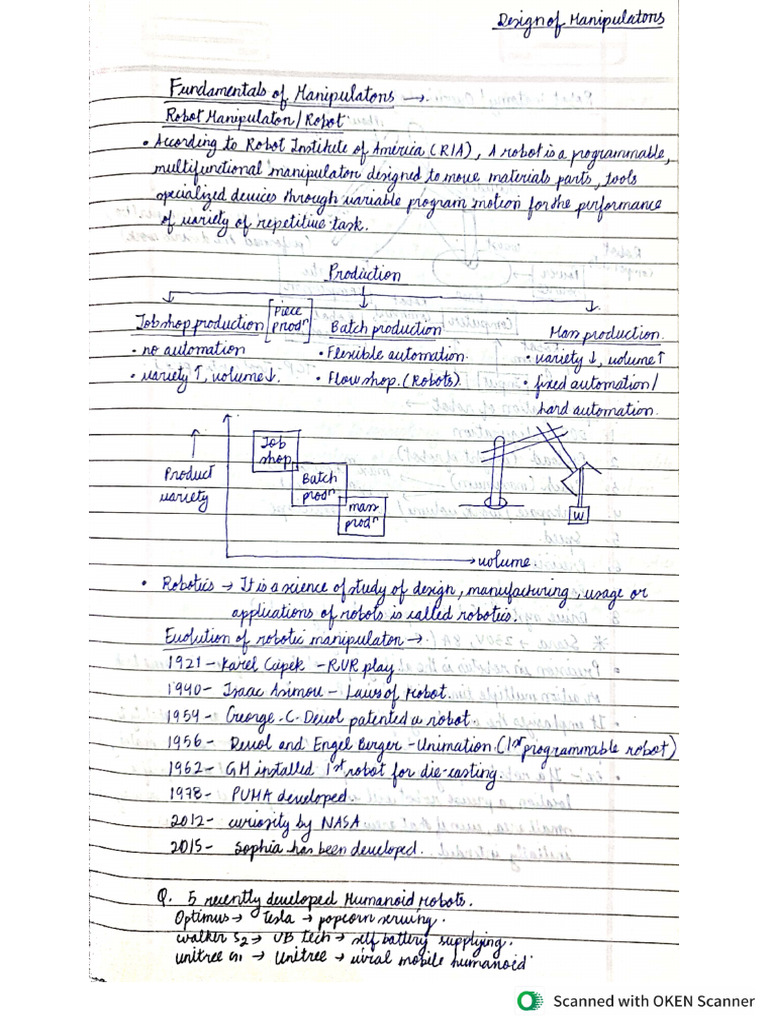 Design of Manipulators
Fundamentals of Manipulators →.
Robot Manipulator / Robot
• According to Robot Institute of America (RIA), A robot is a programmable,
multifunctional manipulator designed to move materials parts, tools
specialized devices through variable program motion for the performance
of variety of repetitive task.
Production
Job shop production [Piece prodⁿ] Batch production Mass production.
• no automation • Flexible automation. • variety ↓, volume ↑
• variety ↑, volume ↓. • Flow shop. (Robots) • fixed automation /
hard automation.
Job
shop
Product
variety
Batch
prodⁿ
mass
prodⁿ
W
→ volume.
• Robotics → It is a science of study of design, manufacturing, usage or
applications of robots is called robotics.
Evolution of robotic manipulator →
1921 - Karel Capek - RUR play
1940 - Isaac Asimov - Laws of Robot.
1954 - George. C. Devol patented a robot.
1956 - Devol and Engel Berger - Unimation. (1st programmable robot)
1962 - GM installed 1st robot for die-casting.
1978 - PUMA developed
2012 - curiosity by NASA
2015 - Sophia has been developed.
Q. 5 recently developed Humanoid robots.
Optimus → Tesla → popcorn serving.
walker S2 → UB tech → self battery supplying.
unitree G1 → Unitree → viral mobile humanoid
Scanned with OKEN Scanner